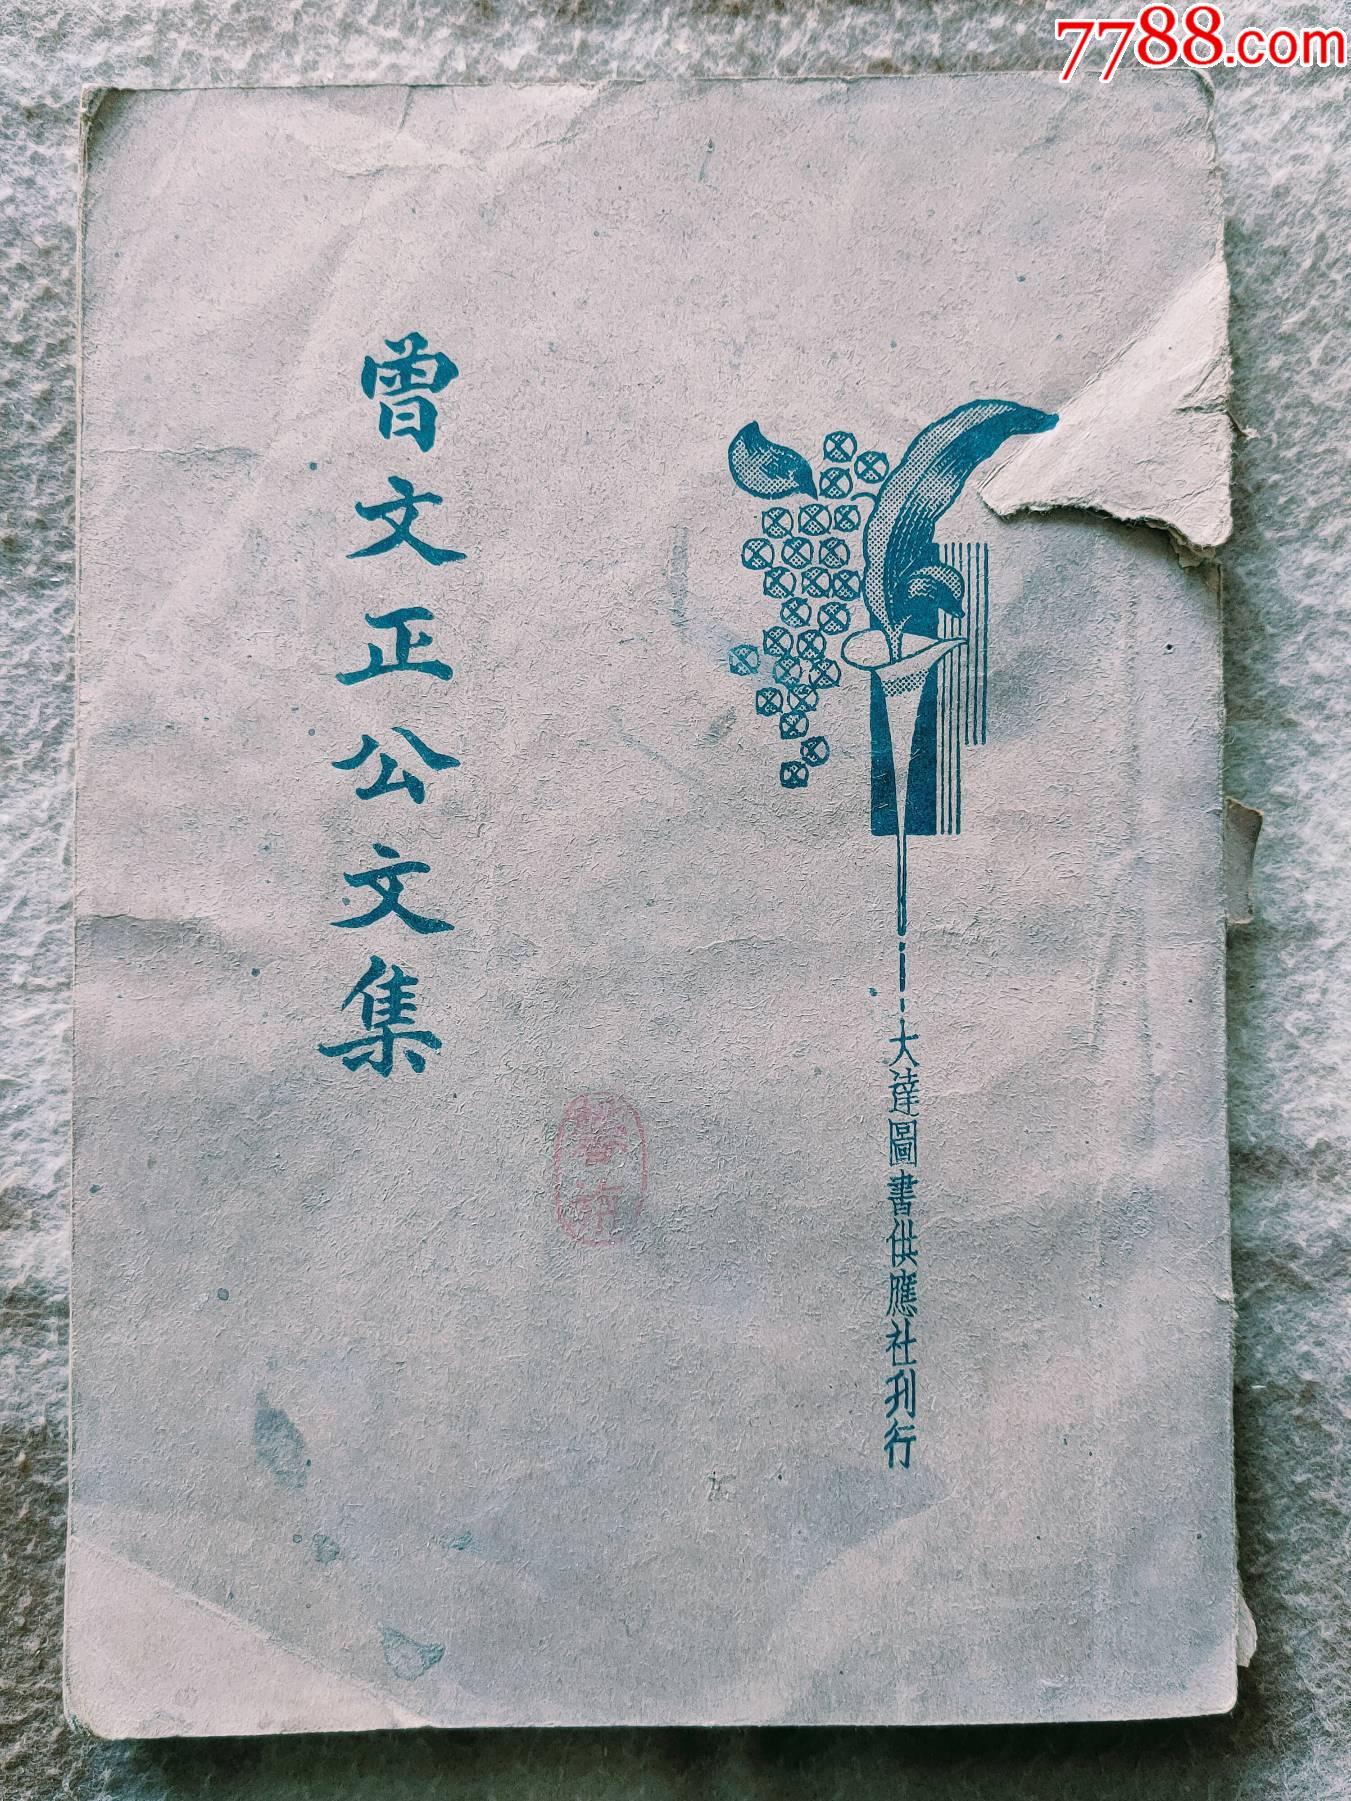 7788.com
曾文正公文集
大達圖書供應社刊行